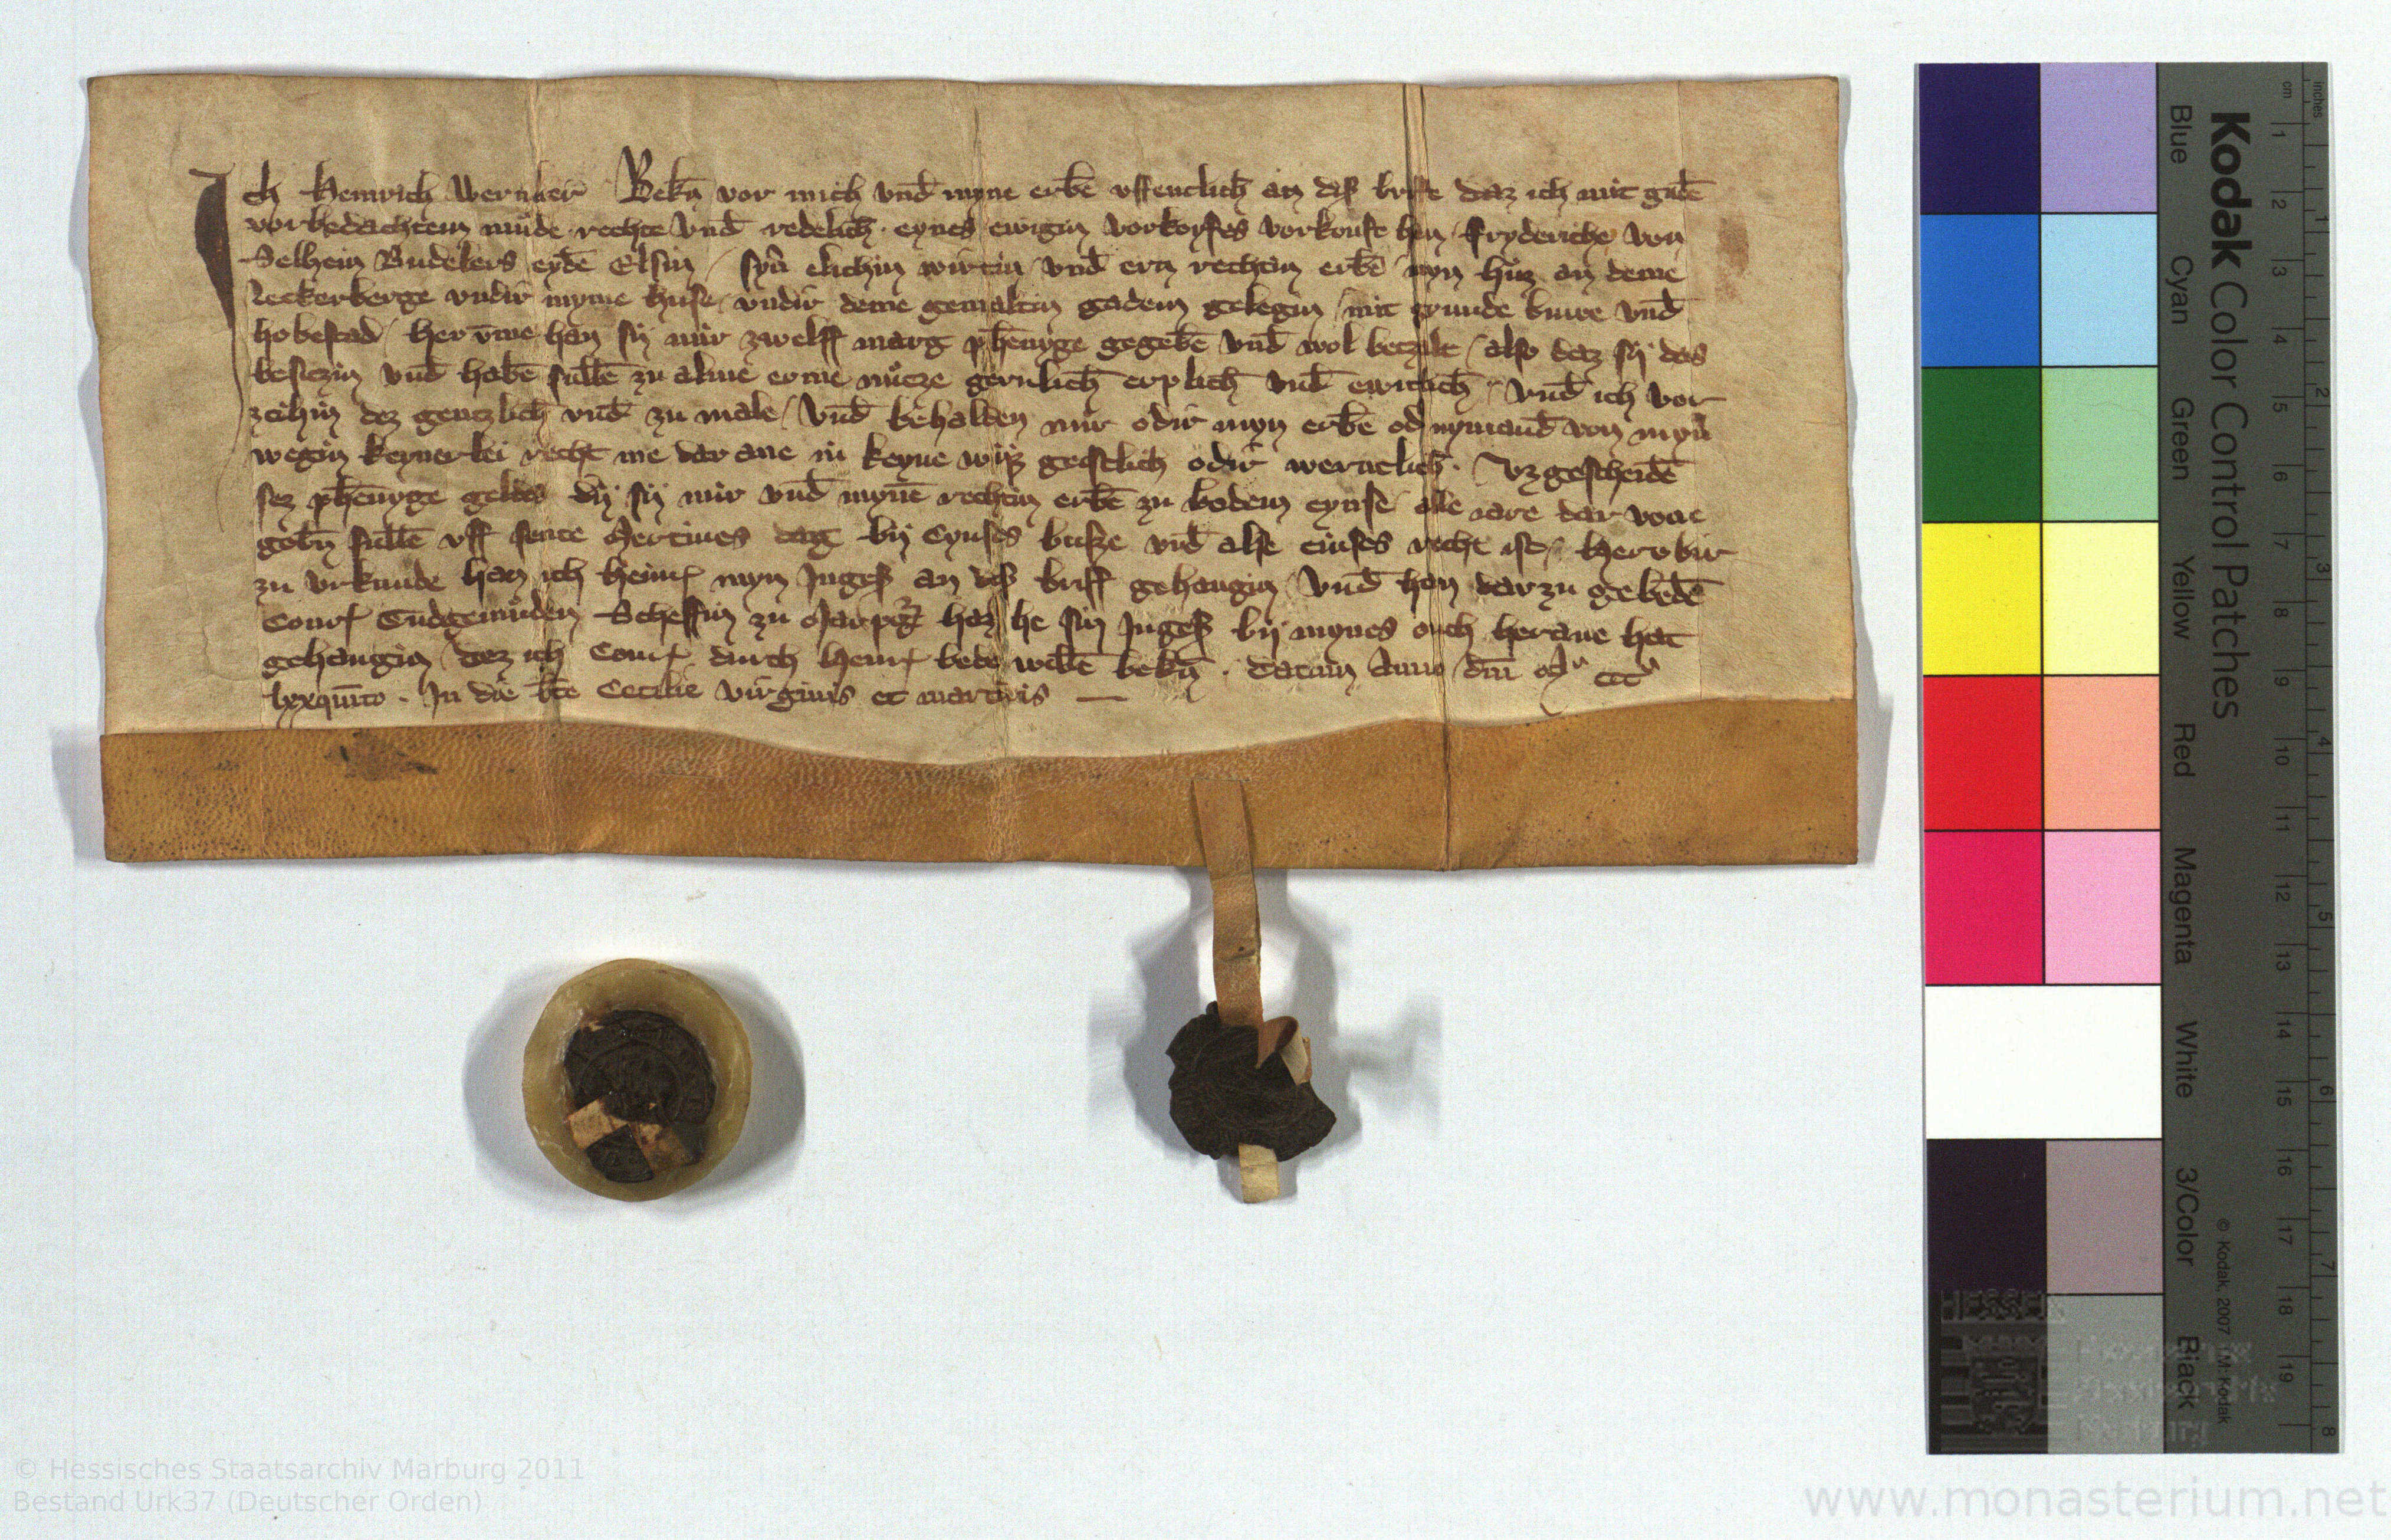 Ich Heinrich Wernher Bekēn vor mich vnd myne erbē vffenclich an dyß brife daz ich mit gudē
vorbedachtem mude rechte vnd redelich eynes ewigin vorkoyfes vorkouft han Fryderiche von
Selhein Budelers eydē Elsin syn̄ elichin wirtin vnd ern rechtin erbē myn huz an deme
leckerberge vndir myme huse vndir deme gemaltin gadem gelegin mit grunde buwe vnd
hobestad her vm̄e han sy mir zwelff marg phēnyge gegebē vnd wol betzalt also daz sy das
besiczin vnd habē sullē zu alme erme nucze gernlich erplich vnd ewiclich vnd ich vor
zcihin dez genczlich vnd zu male vnd behalden mir odir myn erbē od nymand von myn̄
wegin keynerlei recht me dar ane in keyne wiß geistlich odir werntlich. vz gescheidē
sez phēnyge geldes dy sy mir vnd mynē rechtin erbē zu bodem cynse alle iare dar vone
gebn̄ sullē vff sente Mertines dag by Cynses busze vnd alse cinses recht ist her vbir
zu vrkunde han ich heinr̄ myn Ingeß an des briff gehangin vnd han dar zu gebedē
Conr̄ Scheffin zu Marpḡ daz he sin Ingeß by mynes ouch herane hat
gehangin daz ich Conr̄ durch heinr̄ bede willē bekēn. Datum Anno dn̄i Mº CCCº
lxxquīto. In die bt̄e Cecilie virginis et martiris
Kodak Color Control Patches
Blue Cyan Green Yellow Red Magenta White 3/Color Black
© Kodak, 2007 TM: Kodak
cm 1 2 3 4 5 6 7 8 9 10 11 12 13 14 15 16 17 18 19
inches 1 2 3 4 5 6 7 8
© Hessisches Staatsarchiv Marburg 2011
Bestand Urk37 (Deutscher Orden)
www.monasterium.net